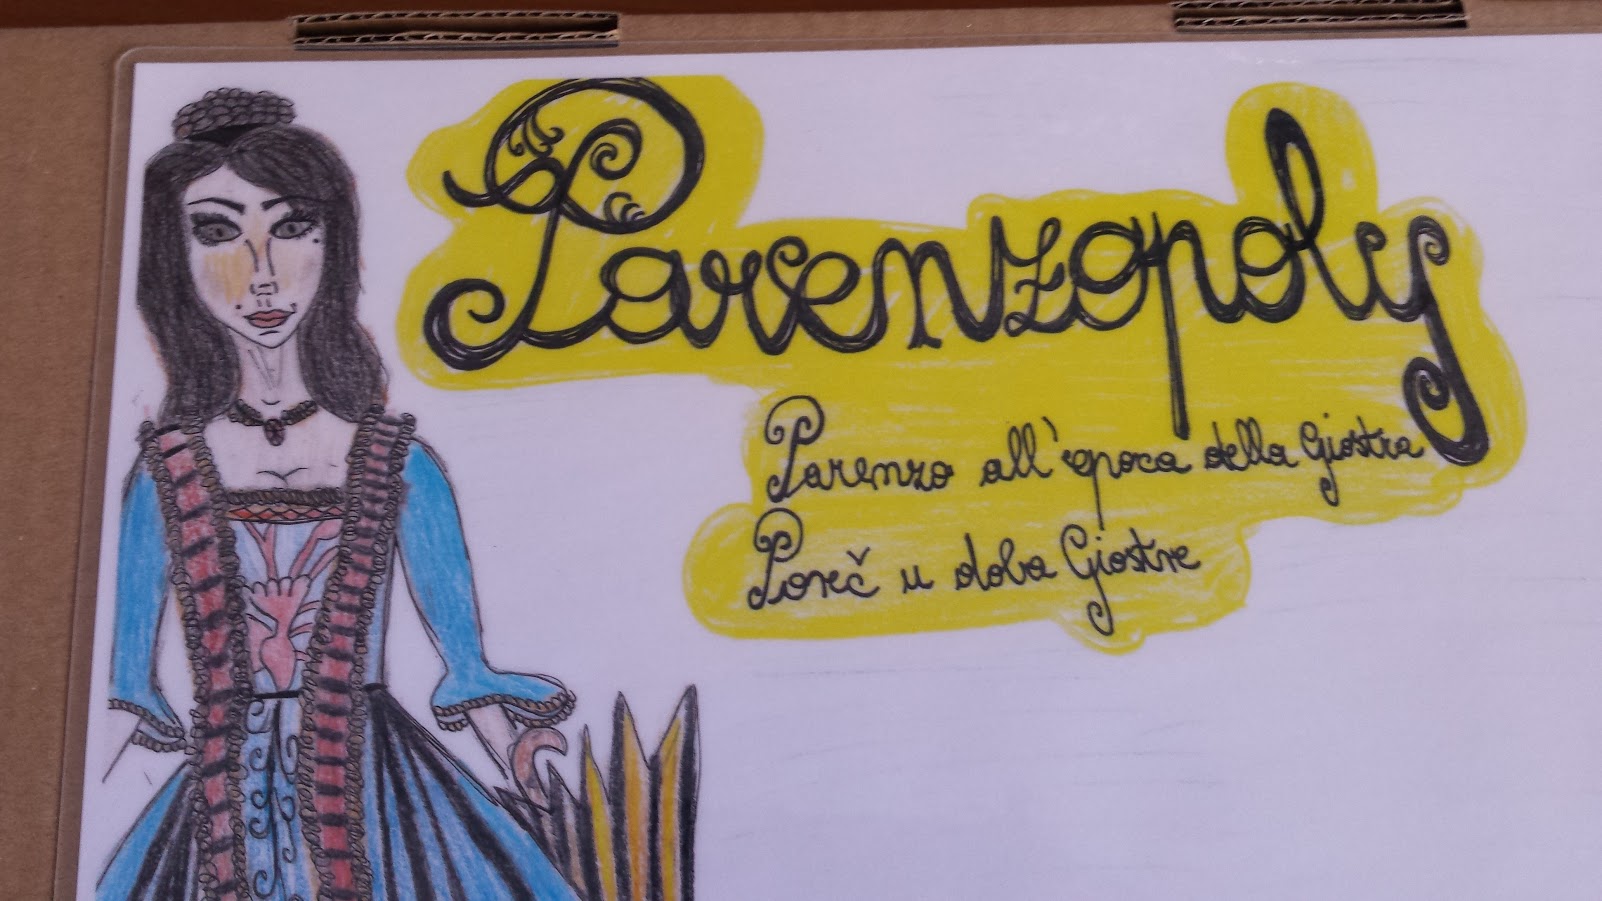 Parenzopoly
Parenzo all'epoca della Giostra
Poreč u doba Giostre